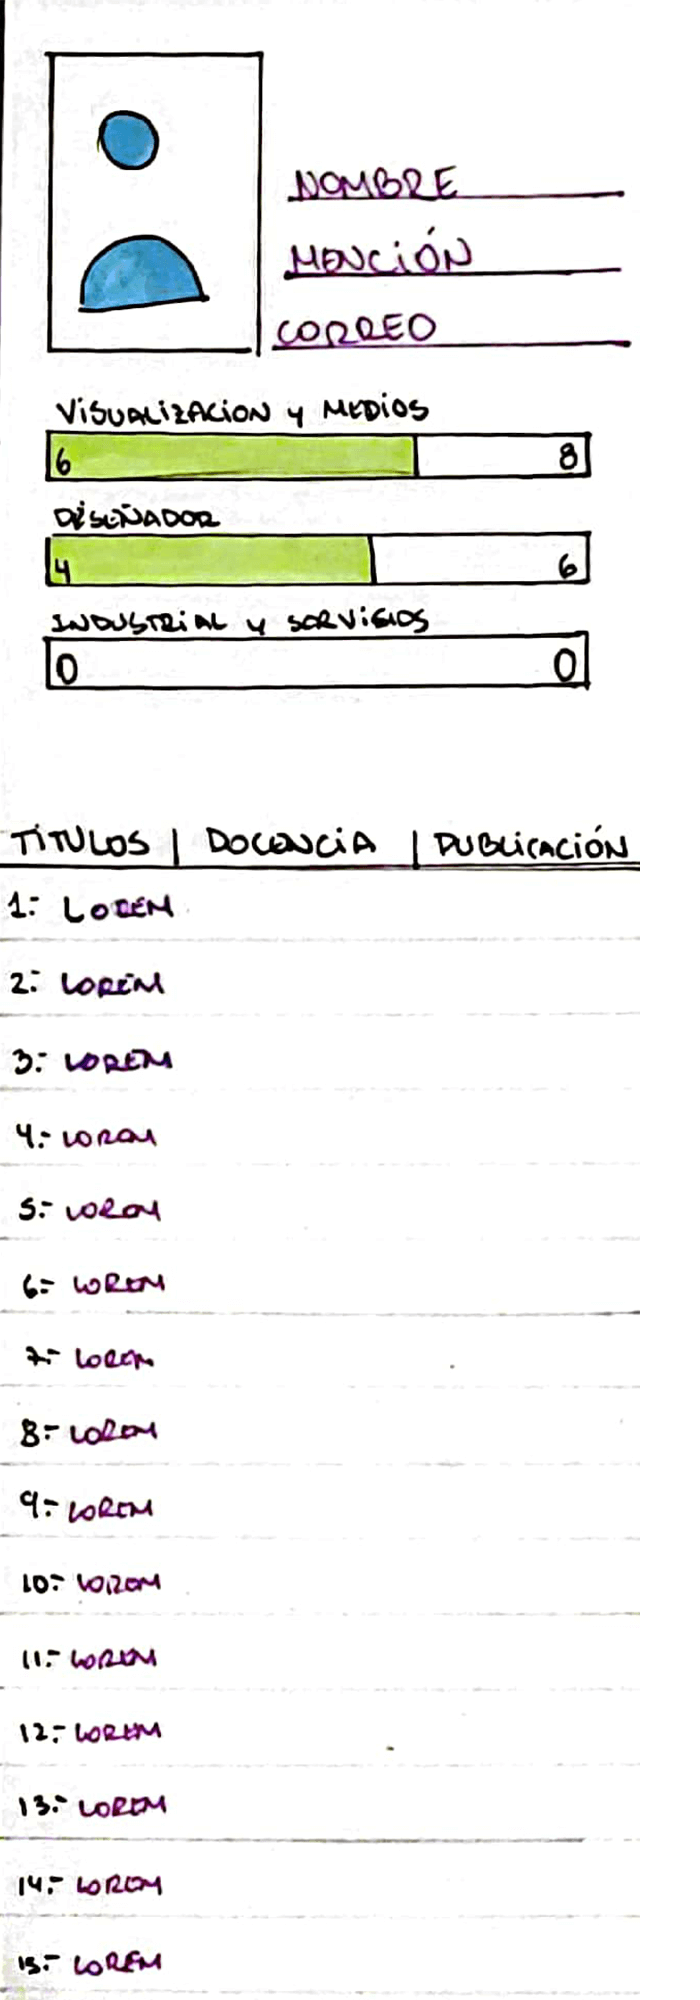 NOMBRE
MENCIÓN
CORREO
VISUALIZACION y MEDIOS
6 8
DISEÑADOR
4 6
INDUSTRIAL y SERVICIOS
0 0
TÍTULOS | DOCENCIA | PUBLICACIÓN
1.- LOREM
2.- LOREM
3.- LOREM
4.- LOREM
5.- LOREM
6.- LOREM
7.- LOREM
8.- LOREM
9.- LOREM
10.- LOREM
11.- LOREM
12.- LOREM
13.- LOREM
14.- LOREM
15.- LOREM